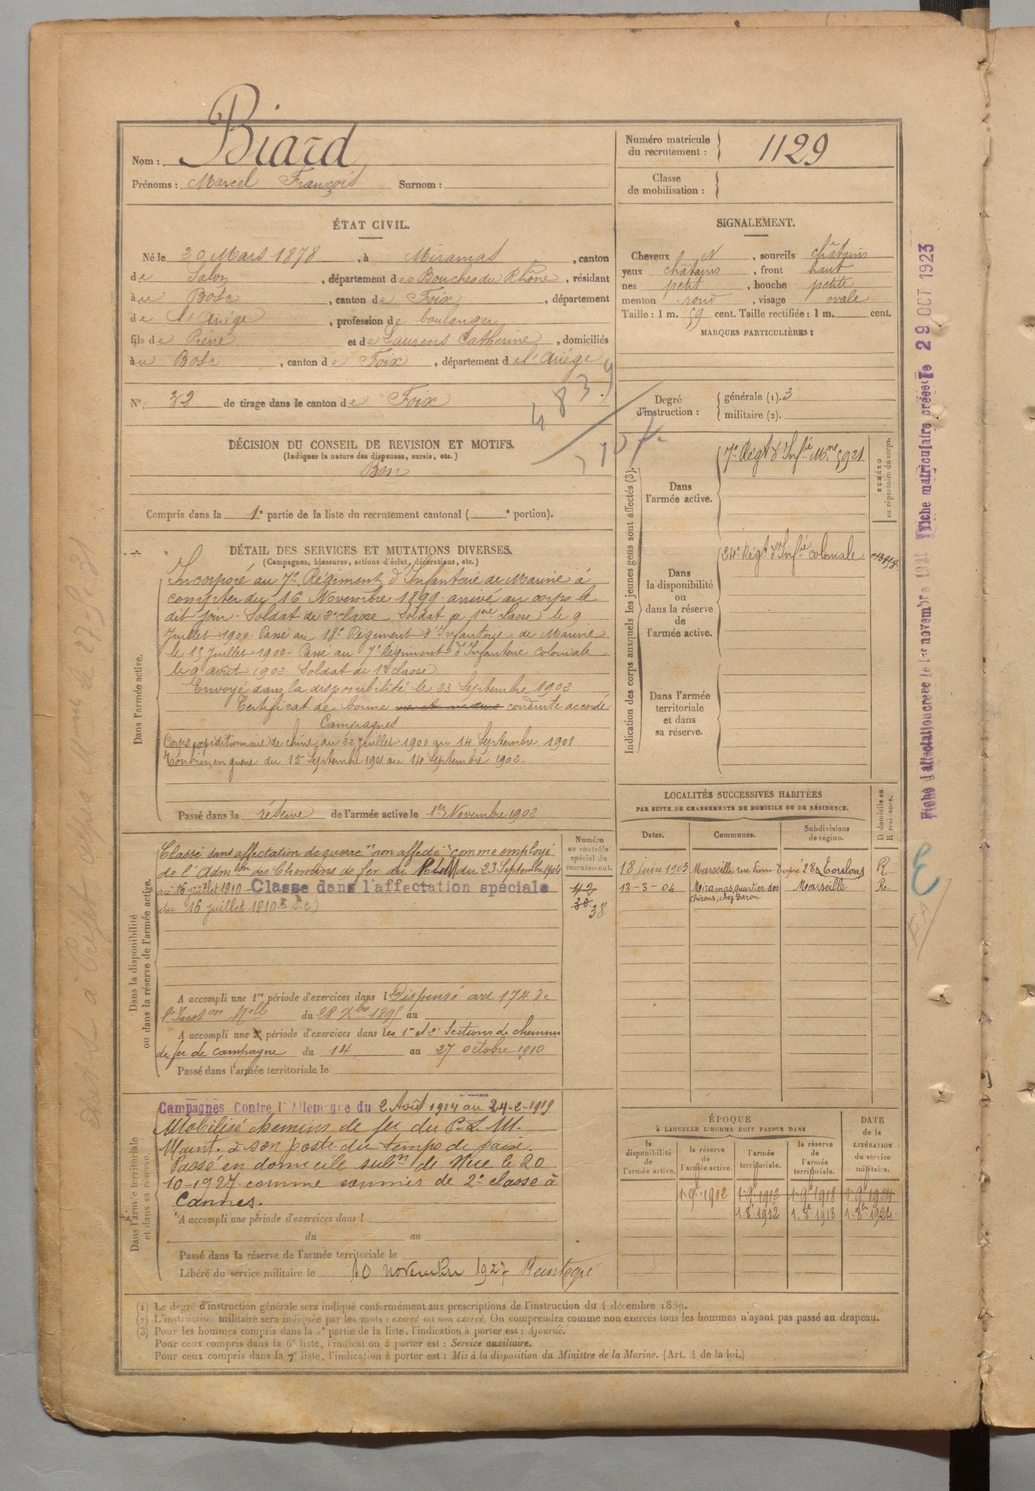 Nom : Biard
Prénoms : Marcel François Surnom :
Numéro matricule du recrutement : 1129
Classe de mobilisation :
ÉTAT CIVIL.
Né le 20 Mars 1878, à Miramas, canton
de Salon, département des Bouches du Rhône, résidant
à u Bosc, canton de Foix, département
de l'Ariège, profession de boulanger
fils de Pierre et de Laurens Catherine, domiciliés
à u Bosc, canton de Foix, département de l'Ariège
N° 32 de tirage dans le canton de Foix
SIGNALEMENT.
Cheveux N, sourcils châtains
yeux châtains, front haut
nez petit, bouche petite
menton rond, visage ovale
Taille : 1 m. 59 cent. Taille rectifiée : 1 m. cent.
MARQUES PARTICULIÈRES :
Degré d'instruction : générale (1). 3
militaire (2).
DÉCISION DU CONSEIL DE REVISION ET MOTIFS.
(Indiquer la nature des dispenses, sursis, etc.)
Bon
Compris dans la 1e partie de la liste du recrutement cantonal ( e portion).
DÉTAIL DES SERVICES ET MUTATIONS DIVERSES.
(Campagnes, blessures, actions d'éclat, décorations, etc.)
Dans l'armée active.
Incorporé au 7e Régiment d'Infanterie de Marine à
compter du 16 Novembre 1899 arrivé au corps le
dit jour. Soldat de 2e classe. Soldat de 1ère classe le 9
Juillet 1900. Passé au 18e Régiment d'Infanterie de Marine
le 15 Juillet 1900. Passé au 7e Régiment d'Infanterie coloniale
le 9 août 1902 Soldat de 1e classe
Envoyé dans la disponibilité le 23 Septembre 1902
Certificat de bonne conduite accordé
Campagnes
Corps expéditionnaire de chine, du 22 Juillet 1900 au 14 Septembre 1901
Tonkin, en guerre du 15 Septembre 1901 au 14 Septembre 1902
Passé dans la réserve de l'armée active le 1er Novembre 1902
Indication des corps auxquels les jeunes gens sont affectés (3).
NUMÉRO au répertoire du corps.
Dans l'armée active.
7e Régt d'Infie Mne 5921
Dans la disponibilité ou dans la réserve de l'armée active.
24e Régt d'Infie coloniale
Dans l'armée territoriale et dans sa réserve.
LOCALITÉS SUCCESSIVES HABITÉES
PAR SUITE DE CHANGEMENTS DE DOMICILE OU DE RÉSIDENCE.
Dates. Communes. Subdivisions de région. D domicile ou R résidence.
18 juin 1903 Marseille R
13-3-04 Miramas quartier des chirons, chez Baron Marseille R.
Dans la disponibilité ou dans la réserve de l'armée active.
Numéro au contrôle spécial du recrutement.
Classé sans affectation de guerre "non affecté" comme employé
de l'Admon des Chemins de fer du P.L.M du 23 Septembre 1904
au 16 juillet 1910 - Classé dans l'affectation spéciale
du 16 juillet 1910
38
A accompli une 1re période d'exercices dans l Dispensé art 174 de
l'Inston Melle du 28 Xbre 1895 au
A accompli une 2e période d'exercices dans les 1e et 2e Sections de chemins
de fer de campagne du 14 au 27 octobre 1910
Passé dans l'armée territoriale le
Dans l'armée territoriale et dans sa réserve.
Campagnes Contre l'Allemagne du 2 Août 1914 au 24-2-1919
Mobilisé chemins de fer du P.L.M.
Maint. à son poste du temps de paix.
Passé en domicile subon de Nice le 20
10-1927 comme commis de 2e classe à
Cannes.
A accompli une période d'exercices dans l
du au
Passé dans la réserve de l'armée territoriale le
Libéré du service militaire le 10 novembre 1927
ÉPOQUE
À LAQUELLE L'HOMME DOIT PASSER DANS
la disponibilité de l'armée active. la réserve de l'armée active. l'armée territoriale. la réserve de l'armée territoriale. DATE de la LIBÉRATION du service militaire.
1-9e 1902 1-9e 1912 1-9e 1918 1-9e 1924
1-8e 1912 1-8e 1918 1-8e 1924
Fiche matriculaire créée le 29 OCT 1923
Fiche d'affectation créée le 1er novembre
(1) Le degré d'instruction générale sera indiqué conformément aux prescriptions de l'instruction du 4 décembre 1889.
(2) L'instruction militaire sera indiquée par les mots : exercé ou non exercé. On comprendra comme non exercés tous les hommes n'ayant pas passé au drapeau.
(3) Pour les hommes compris dans la 5e partie de la liste, l'indication à porter est : Ajourné.
Pour ceux compris dans la 6e liste, l'indication à porter est : Service auxiliaire.
Pour ceux compris dans la 7e liste, l'indication à porter est : Mis à la disposition du Ministre de la Marine. (Art. 4 de la loi.)